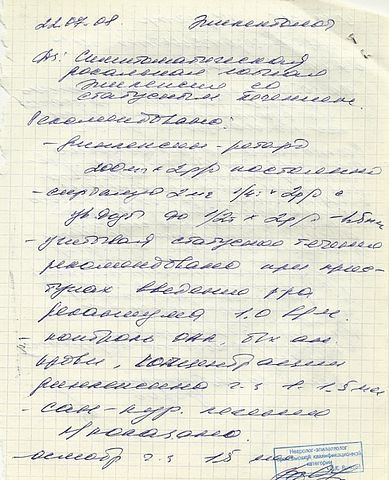 22.07.08. Эпилептолог
Ds: Симптоматическая
лобная
эпилепсия со
статусным течением.
Рекомендовано:
- финлепсин-ретард
200мг х 2р/д постоянно
- 2мг 1/4т х 2р/д с
до 1/2т х 2р/д - 1,5мес
- учитывая статусное течение
рекомендовано при прис-
тупах введение р-ра
реланиума 1.0 в/м.
- контроль ОАК, б/х ан.
крови, концентрации
финлепсина ч-з 1-1,5мес
- сан-кур. лечение
не показано.
- осмотр ч-з 1,5 мес
Невролог-эпилептолог
квалификационной
категории